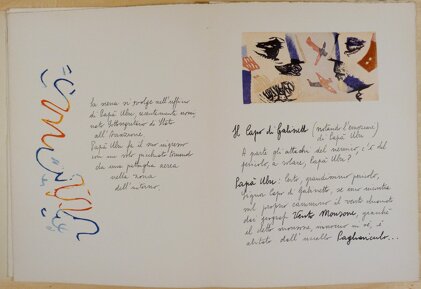 La scena si svolge nell'ufficio
di Papà Ubu, recentemente nomi
nato Sottosegretario di Stato
all'Aviazione.
Papà Ubu fa il suo ingresso
con un volo
da una pattuglia aerea
nella zona
dell'autunno.
Il Capo di Gabinetto (notando l'emozione)
di Papà Ubu
A parte gli attacchi del nemico, c'è del
pericolo, a volare, Papà Ubu?
Papà Ubu: Certo, grandissimo pericolo,
signor Capo di gabinetto, se uno incontra
sul proprio cammino il vento
dai geografi Vento Monsone, giacché
il detto monsone in sé, è
abitato dall'uccello